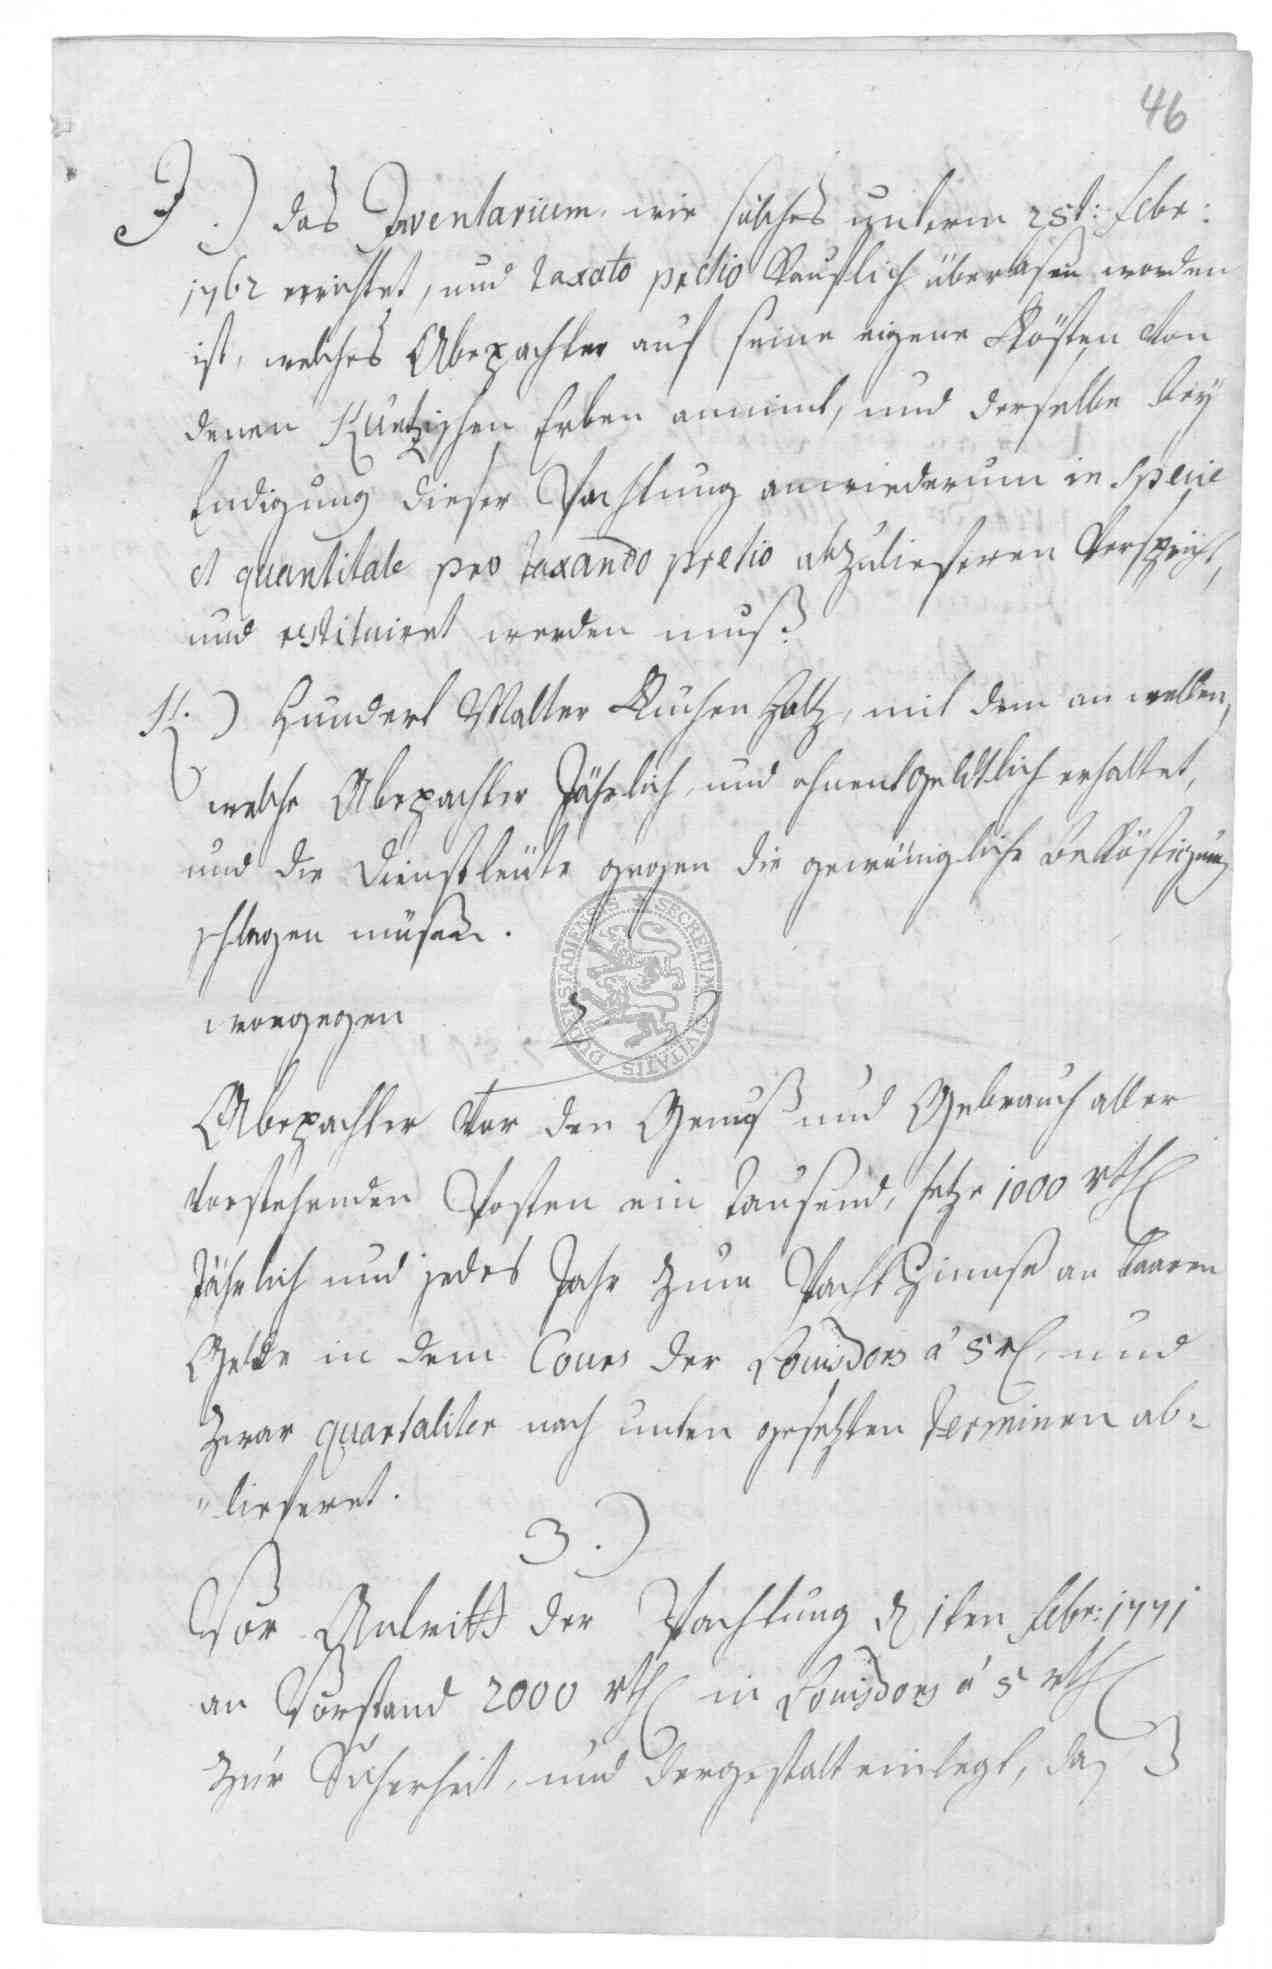 46
J.) das Inventarium, wie solches unterm 25t: Febr:
1762 errichtet, und taxato pretio Kauflich überlasen worden
ist, welches Abepachter auf seine eigene Kösten von
denen Kuntzischen Erben annimt, und derselbe bey
Endigung dieser Pachtung anwiederum in specie
et quantitate pro taxando pretio abzulieferen verspricht,
und restituiret werden muß.
K.) Hundert Malter Kuchen Holtz, mit dem an wellen,
welche Abepachter Jährlich und ohnentgeldtlich erhaltet,
und die Dienstleüte gegen die gewönigliche Beköstigung
schlagen müsen.
worgegen
2
Abepachter vor den Genuß und Gebrauch aller
vorstehenden Posten ein tausend, setze 1000 rth
Jährlich und jedes Jahr zum Pacht Zinnse an baaren
Gelde in dem Cours der Louisdors á 5 rt, und
zwar quartaliter nach unten gesetzten Terminen ab=
"lieferet.
3.)
Vor Antritt der Pachtung d 1ten Febr: 1771
an Vorstand 2000 rth in Louisdors á 5 rth
zur Sicherheit, und dergestalt einlegt, daß
SECRETUM CIVITATIS DUDERSTADIENSIS